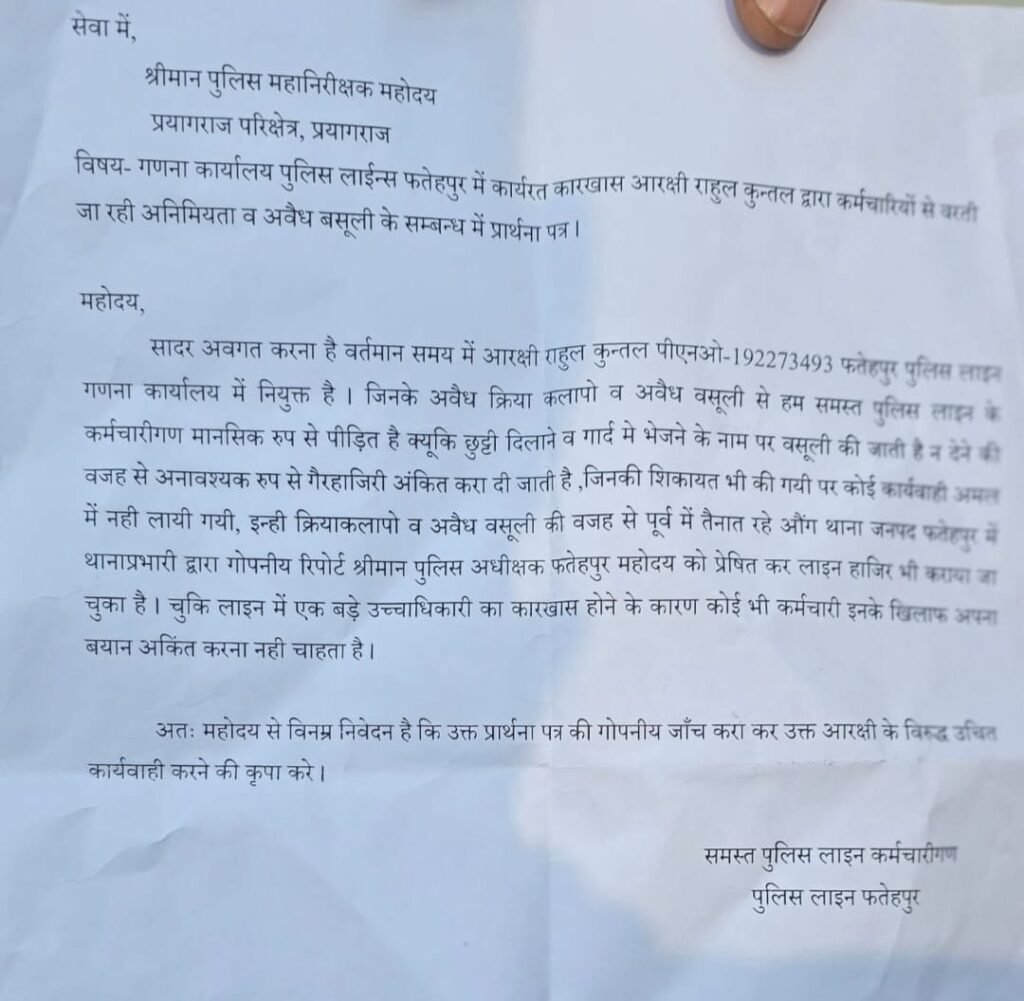 सेवा में,
श्रीमान पुलिस महानिरीक्षक महोदय
प्रयागराज परिक्षेत्र, प्रयागराज
विषय- गणना कार्यालय पुलिस लाईन्स फतेहपुर में कार्यरत कारखास आरक्षी राहुल कुन्तल द्वारा कर्मचारियों से बरती
जा रही अनिमियता व अवैध बसूली के सम्बन्ध में प्रार्थना पत्र।
महोदय,
सादर अवगत करना है वर्तमान समय में आरक्षी राहुल कुन्तल पीएनओ-192273493 फतेहपुर पुलिस लाइन
गणना कार्यालय में नियुक्त है । जिनके अवैध क्रिया कलापो व अवैध वसूली से हम समस्त पुलिस लाइन के
कर्मचारीगण मानसिक रुप से पीड़ित है क्यूकि छुट्टी दिलाने व गार्द मे भेजने के नाम पर वसूली की जाती है न देने की
वजह से अनावश्यक रुप से गैरहाजिरी अंकित करा दी जाती है ,जिनकी शिकायत भी की गयी पर कोई कार्यवाही अमल
में नही लायी गयी, इन्ही क्रियाकलापो व अवैध वसूली की वजह से पूर्व में तैनात रहे औंग थाना जनपद फतेहपुर में
थानाप्रभारी द्वारा गोपनीय रिपोर्ट श्रीमान पुलिस अधीक्षक फतेहपुर महोदय को प्रेषित कर लाइन हाजिर भी कराया जा
चुका है । चुकि लाइन में एक बड़े उच्चाधिकारी का कारखास होने के कारण कोई भी कर्मचारी इनके खिलाफ अपना
बयान अकिंत करना नही चाहता है ।
अतः महोदय से विनम्र निवेदन है कि उक्त प्रार्थना पत्र की गोपनीय जाँच करा कर उक्त आरक्षी के विरुद्ध उचित
कार्यवाही करने की कृपा करे ।
समस्त पुलिस लाइन कर्मचारीगण
पुलिस लाइन फतेहपुर